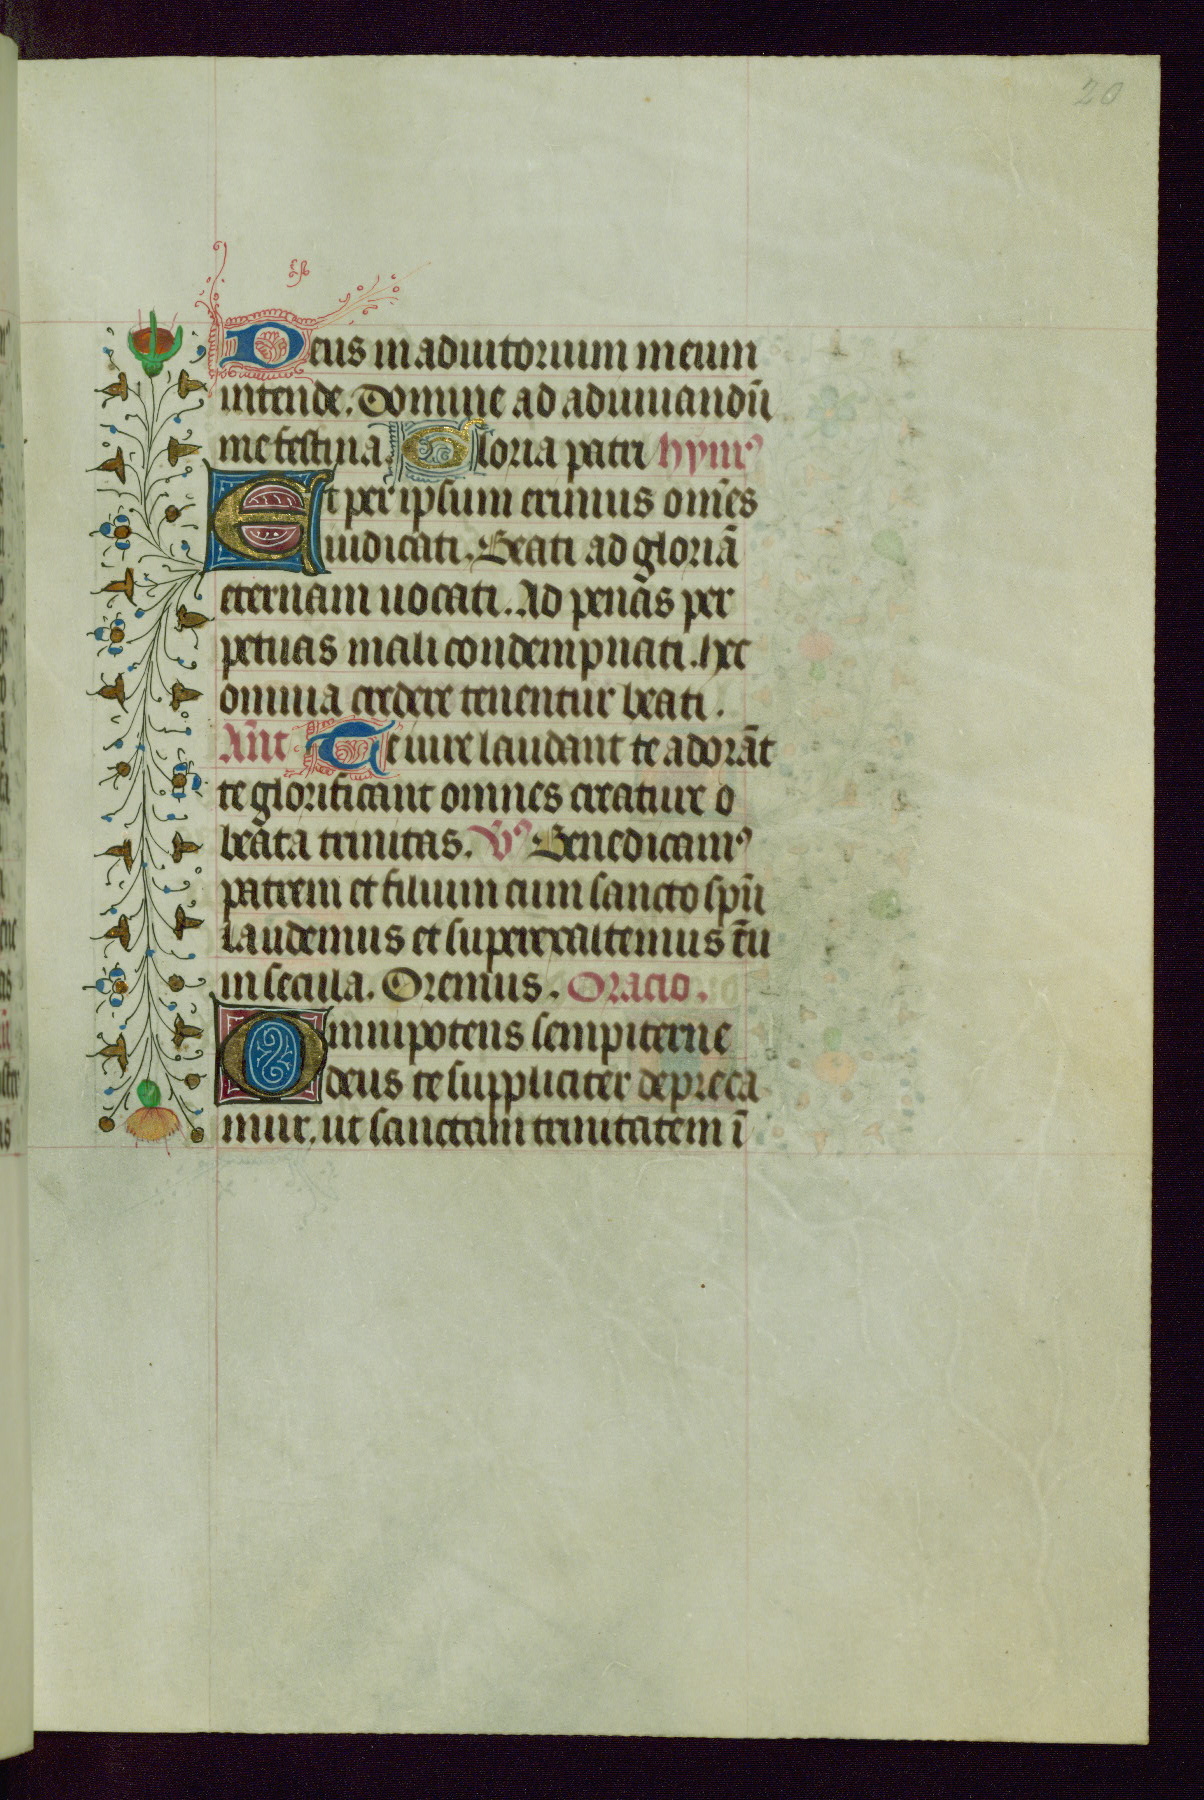 20
Deus in adiutorium meum
intende. Domine ad adiuuandū
me festina. Gloria patri hymꝰ
Et per ipsum erimus om̄es
iudicati. Beati ad gloriā
eternam uocati. Ad penas per
petuas mali condempnati. hec
omnia credere tenentur beati.
An̄t Te iure laudant te adorāt
te glorificant omnes creature o
beata trinitas. Vꝰ Benedicamꝰ
patrem et filium cum sancto spū
Laudemus et superexaltemus eū
in secula. Oremus. Oracio.
Omnipotens sempiterne
deus te suppliciter depreca
mur. ut sanctam trinitatem ī